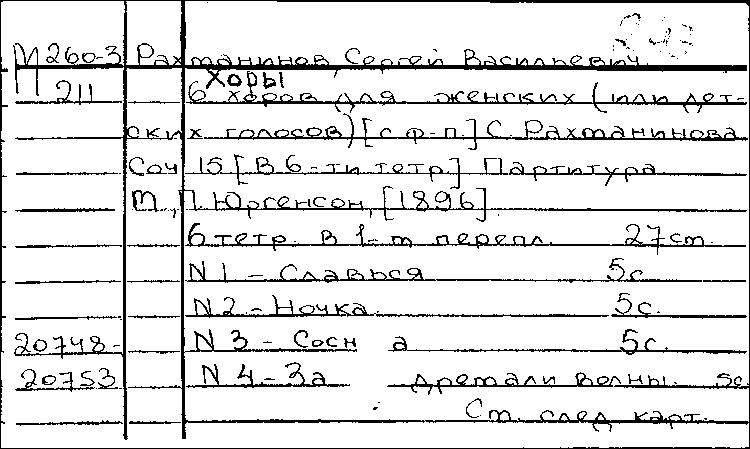 М 260-3 Рахманинов, Сергей Васильевич.
Хоры
211 6 хоров для женских (или дет-
ских голосов) [с ф-п.] С. Рахманинова
Соч 15 [В 6-ти тетр.] Партитура
М., П. Юргенсон, [1896].
6 тетр. в 1-м перепл. 27см.
N 1 - Славься 5с.
N 2 - Ночка. 5с.
20748- N 3 - Сосн а 5с.
20753 N 4 - За дремали волны. 5с.
См. след карт.